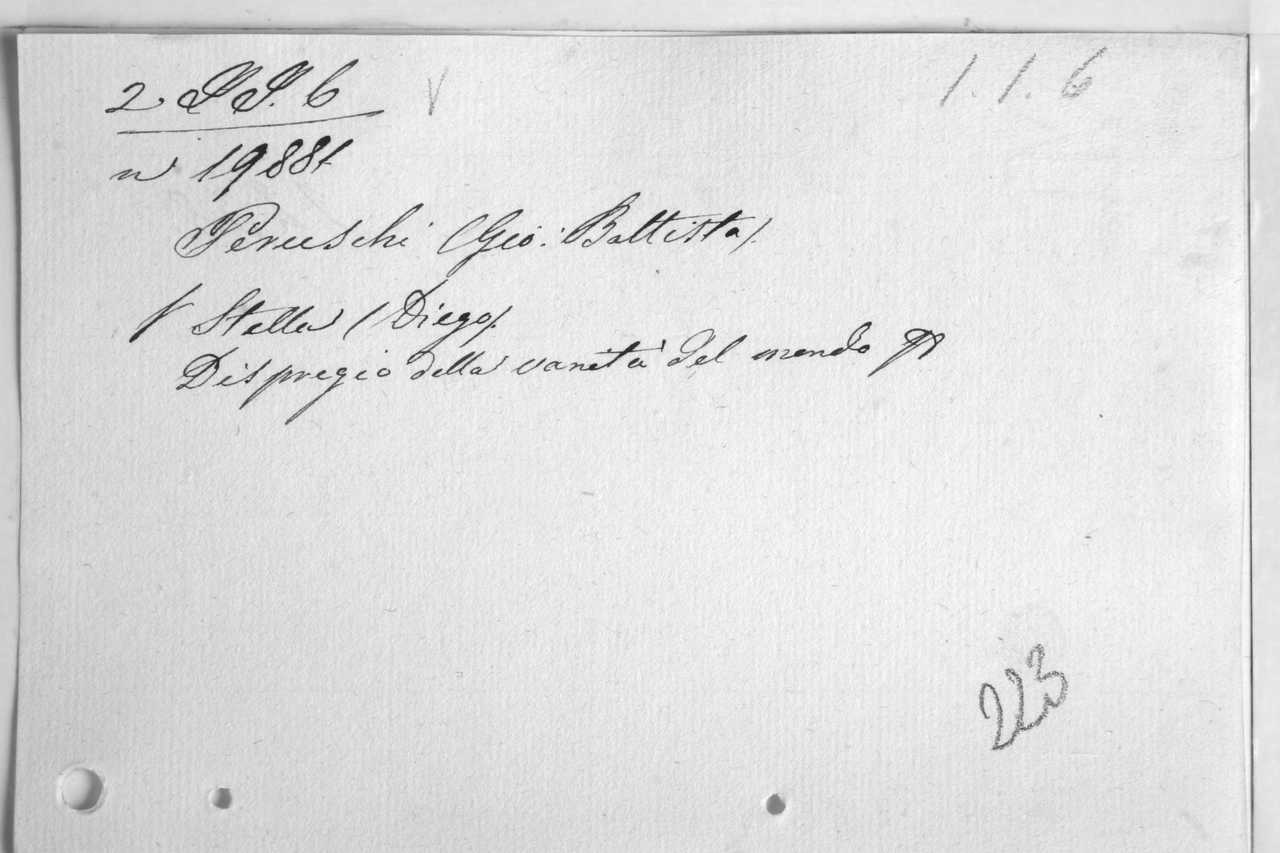 2 PP. 6 V 1.1.6
n 19881
Peruschi (Gio: Battista).
V Stella (Diego).
Dispregio della vanità del mondo
223